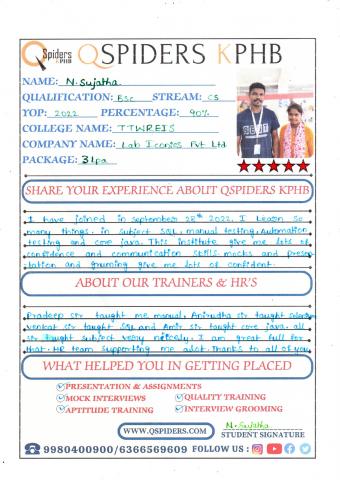 QSpiders KPHB
QSPIDERS KPHB
NAME: N. Sujatha
QUALIFICATION: Bsc STREAM: CS
YOP: 2022 PERCENTAGE: 90%
COLLEGE NAME: TTWREIS
COMPANY NAME: Lab Iconics Pvt Ltd
PACKAGE: 3 lpa
SHARE YOUR EXPERIENCE ABOUT QSPIDERS KPHB
I have joined in september 28th 2022. I Learn so
many things. in subject SQL, manual testing, Automation
testing and core java. This institute give me lots of
confidence and communication skills. mocks and presen
tation and gruming give me lots of confident.
ABOUT OUR TRAINERS & HR'S
Pradeep sir taught me manual, Anirudha sir taught
venkat sir taught SQL and Amir sir taught core java. all
sir taught subject veary nicely. I am great full for
that. HR team supporting me alot. Thanks to all of you
WHAT HELPED YOU IN GETTING PLACED
PRESENTATION & ASSIGNMENTS
MOCK INTERVIEWS QUALITY TRAINING
APTITUDE TRAINING INTERVIEW GROOMING
WWW.QSPIDERS.COM
N. Sujatha
STUDENT SIGNATURE
9980400900/6366569609 FOLLOW US :